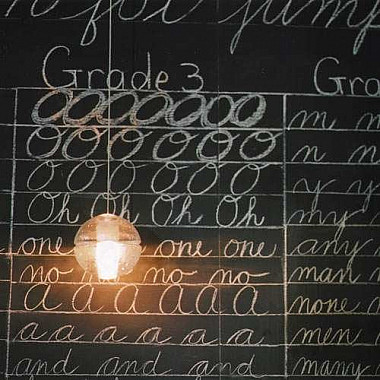 for jump
Grade 3
OOOOOOO
O O O O O O
O O O O O
Oh Oh Oh Oh
one one one
no no no no
a a a a a a
a a a a a a
and and and
m
n
y y
my
any
man
none
men
many